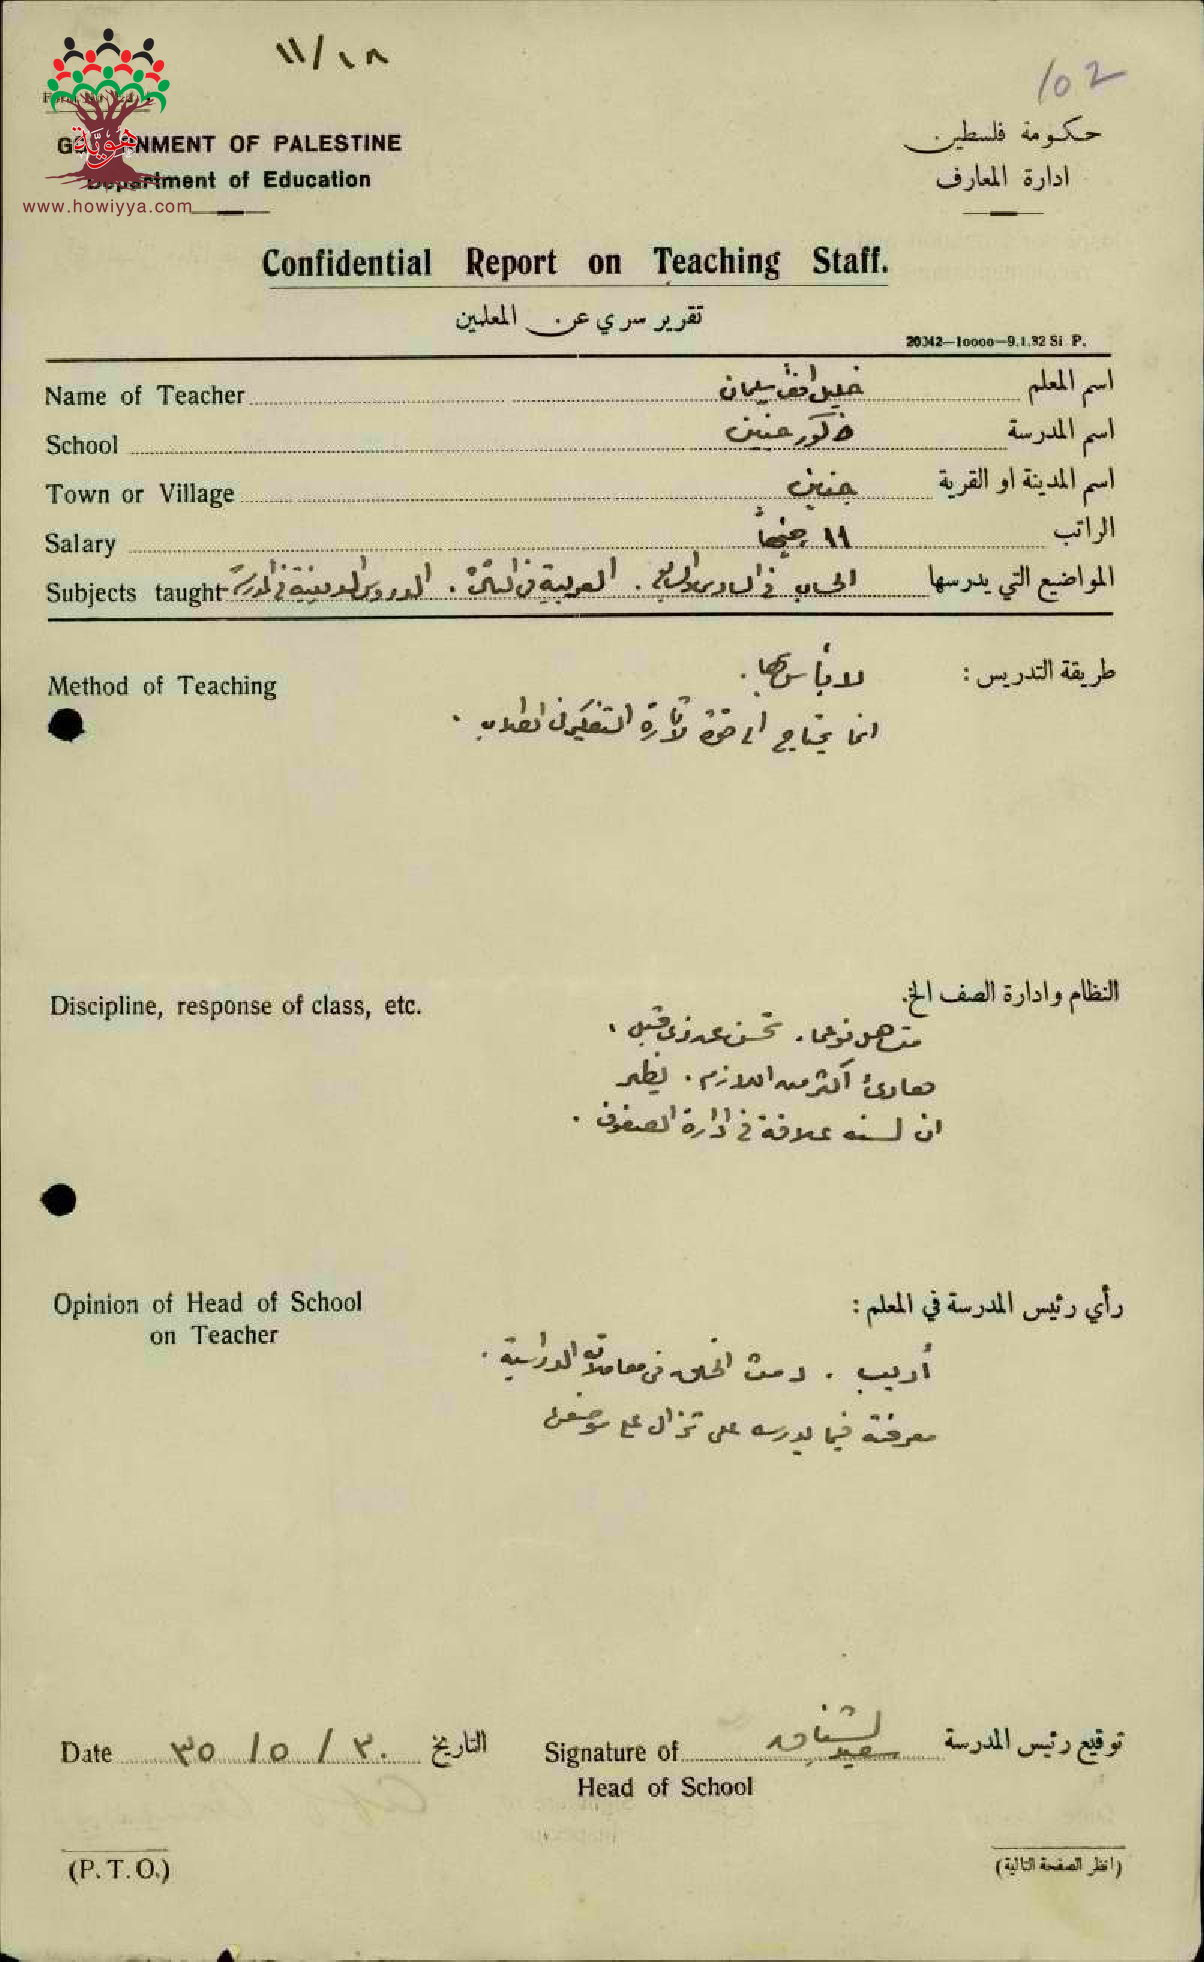 ١١/١٨
102
GOVERNMENT OF PALESTINE
Department of Education
هوية
www.howiyya.com
حكومة فلسطين
ادارة المعارف
Confidential Report on Teaching Staff.
تقرير سري عن المعلمين
20342—10000—9.1.32 Si. P.
Name of Teacher خليل افندي سليمان اسم المعلم
School ذكور جنين اسم المدرسة
Town or Village جنين اسم المدينة او القرية
Salary ١١ جنيهاً الراتب
Subjects taught الحساب في السادس والسابع . العربية في الثالث . الدروس الدينية في المدرسة المواضيع التي يدرسها
Method of Teaching طريقة التدريس :
لا بأس بها .
انما يحتاج الى لاثارة التفكير في الطلاب .
Discipline, response of class, etc. النظام وادارة الصف الخ.
متساهل نوعا . تحسن عن ذي قبل .
هادئ أكثر من اللازم . يظهر
ان لسنه علاقة في ادارة الصفوف .
Opinion of Head of School
on Teacher
رأي رئيس المدرسة في المعلم :
أديب . دمث الخلق في معاملاته المدرسية .
معرفته فيما يدرسه
Date ٣٥/٥/٣٠ التاريخ
Signature of سعيد توقيع رئيس المدرسة
Head of School
(P. T. O.)
(انظر الصفحة التالية)